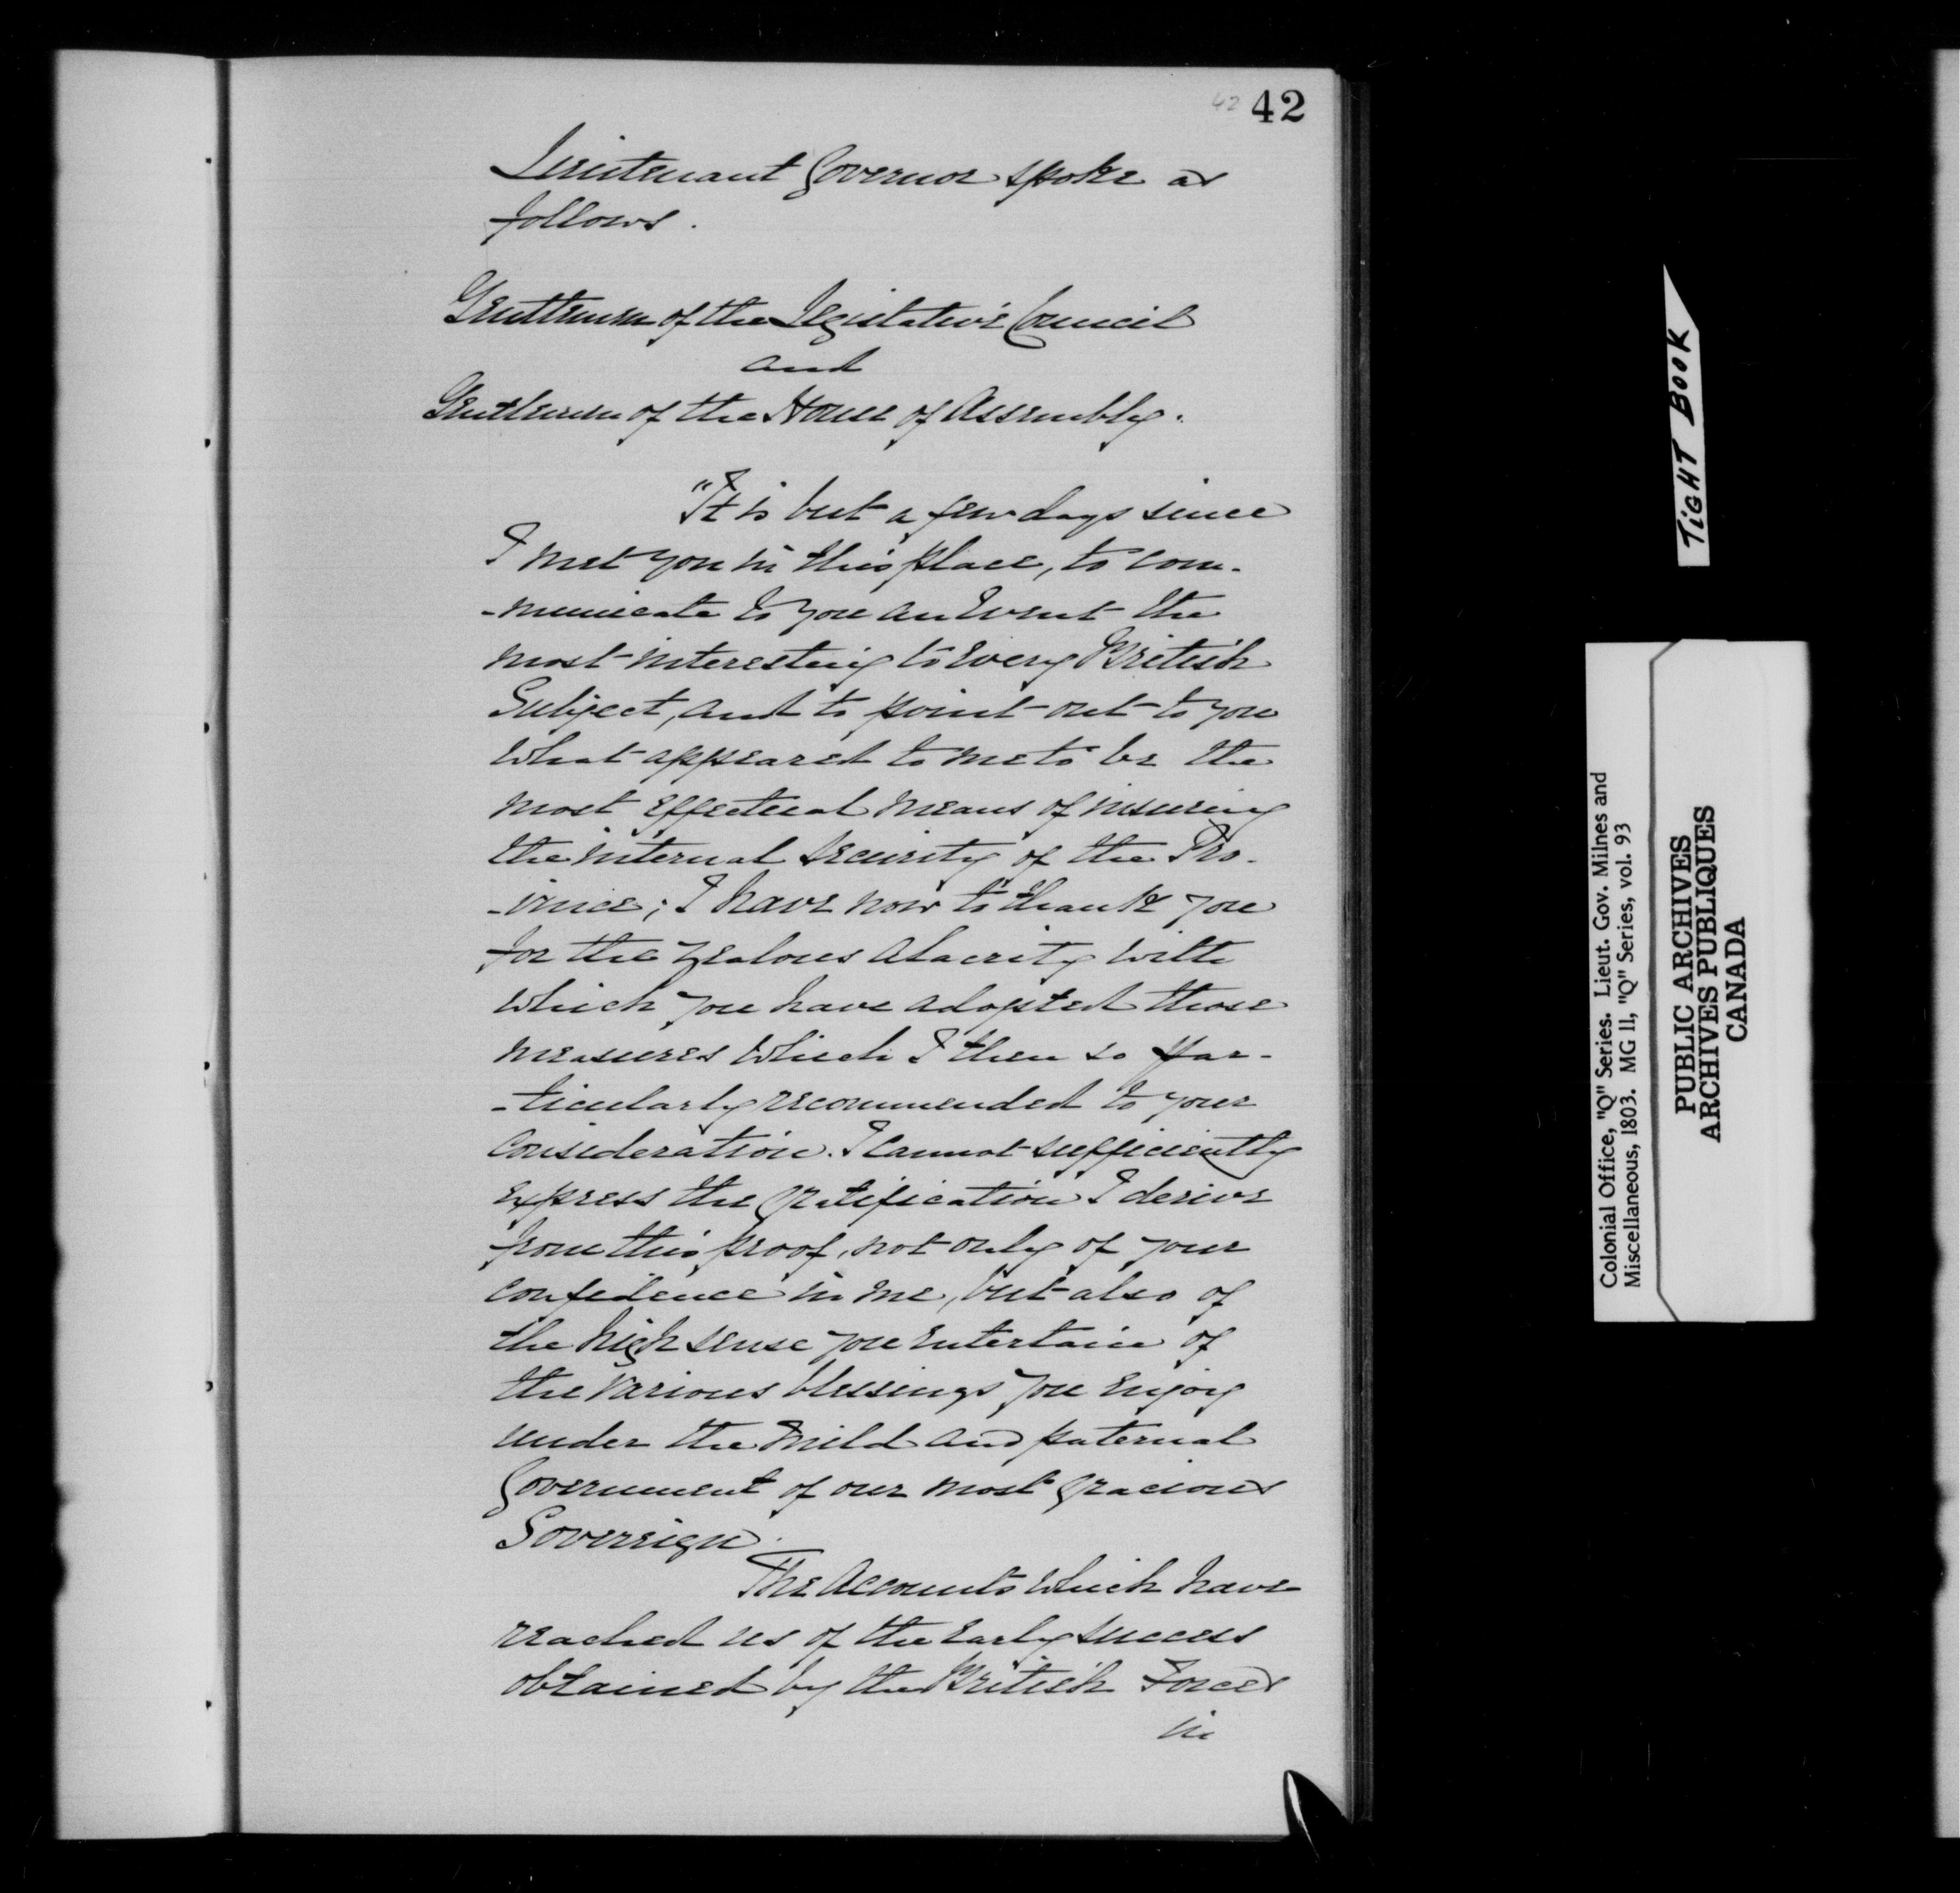 42 42
Lieutenant Governor spoke as
follows.
Gentlemen of the Legislative Council
and
Gentlemen of the House of Assembly.
"It is but a few days since
I met you in this place, to com-
-municate to you an Event the
most interesting to every British
Subject, and to point out to you
what appeared to me to be the
most effectual means of insuring
the internal security of the Pro-
-vince; I have now to thank you
for the zealous alacrity with
which you have adopted those
measures which I then so par-
-ticularly recommended to your
consideration. I cannot sufficiently
express the gratification I derive
from this proof, not only of your
confidence in me, but also of
the high sense you entertain of
the various blessings you enjoy
under the mild and paternal
Government of our most gracious
Sovereign.
The Accounts which have
reached us of the early success
obtained by the British Forces
in
TIGHT BOOK
Colonial Office, "Q" Series. Lieut. Gov. Milnes and
Miscellaneous, 1803. MG 11, "Q" Series, vol. 93
PUBLIC ARCHIVES
ARCHIVES PUBLIQUES
CANADA